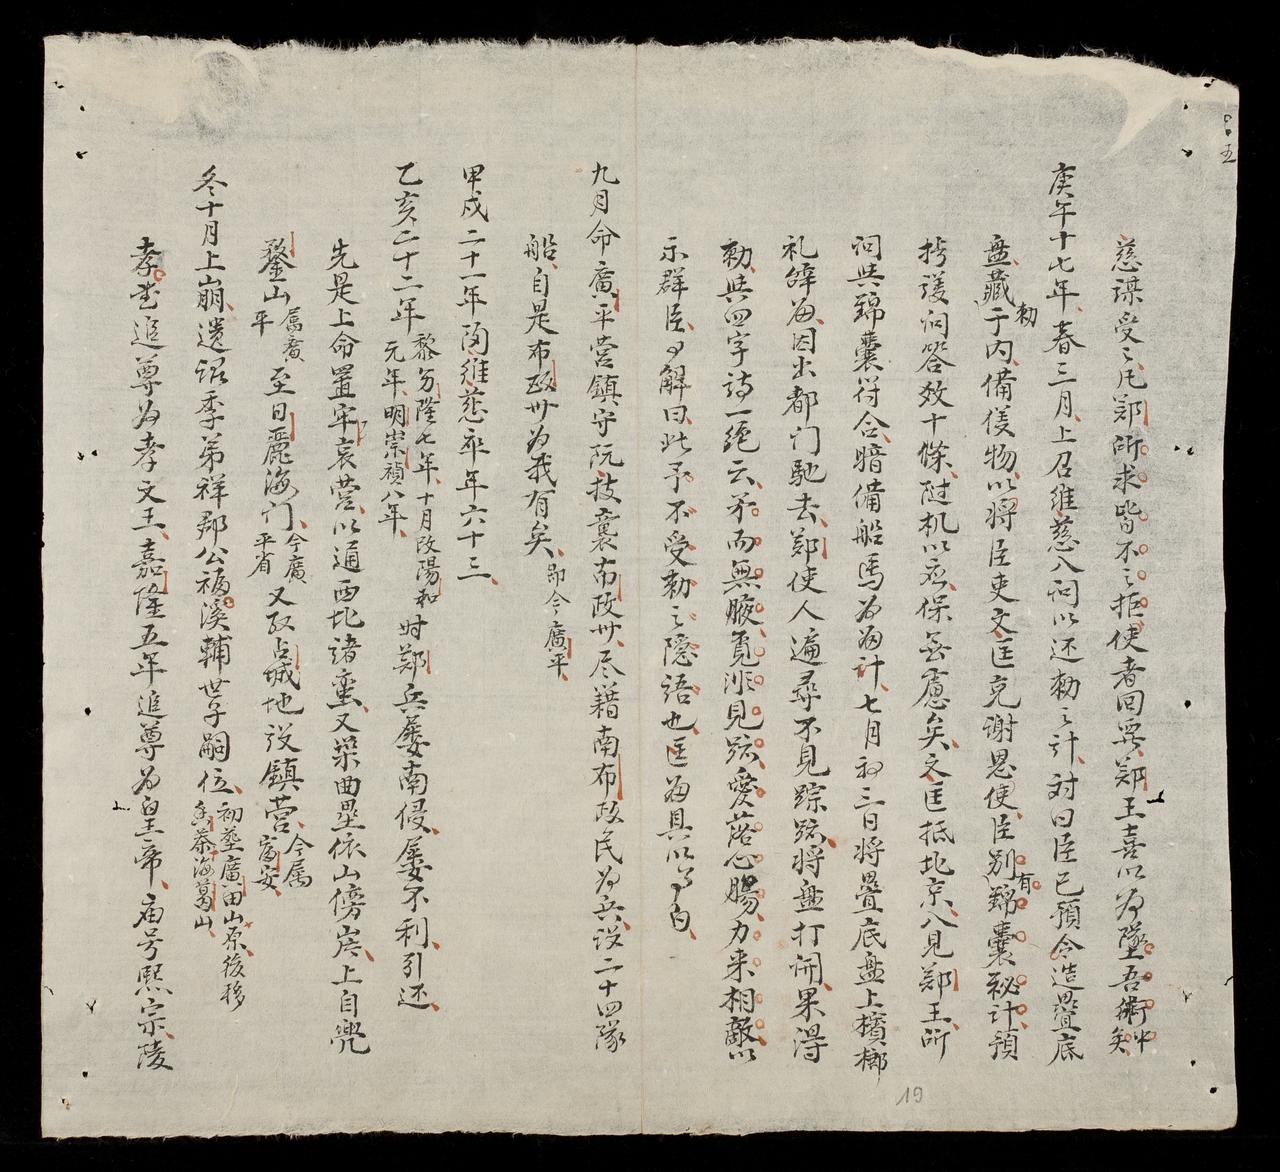 五
慈謀受之凡鄭所求皆不之拒使者回與鄭王喜以为墜吾術中矣
庚午十七年春三月上召維慈入问以还勅之计对曰臣已預令造疊底
盘藏勅于内備𠊎物以将臣吏文匡克谢恩使臣别有錦囊祕计預
拟𠊎问答数十條随机以应保無慮矣文匡抵北京入見鄭王所
问與錦囊符合暗備船馬为為计七月初三日将疊底盘上檳榔
礼辞為因出都门馳去鄭使人遍尋不見踪跡将盘打開果得
勅與四字诗一絶云矛而無腋覓非見跡愛落心腸力来相敵以
示群臣解曰此予不受勅之隱語也匡為具以事白
九月命廣平营鎮守阮技襄布政卅尽籍南布政民为兵设二十四隊
船自是布政卅为我有矣即今廣平
甲戍二十一年陶維慈卒年六十三
乙亥二十二年黎勿隆七年十月改陽和元年明崇禎八年时鄭兵屡南侵屡不利引还
先是上命置牢哀营以通西北諸蛮又築曲壘依山傍岸上自兜
鍪山属廣平至日麗海门今廣平省又取占城地设鎮营今属富安
冬十月上崩遗诏季弟祥郡公福溪輔世子嗣位初塟廣田山原後移香茶海葛山
孝哲追尊为孝文王嘉隆五年追尊为皇帝庙号熙宗陵
19